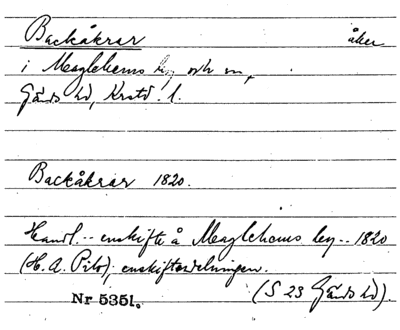 Backåkrar åker
i Maglehems by och sn,
Gärds hd, Krstd. l.
Backåkrar 1820.
Handl. -- enskifte å Maglehems by -- 1820
(H. A. Pilo); enskiftesdelningen.
Nr 5351. (S 23 Gärds hd).